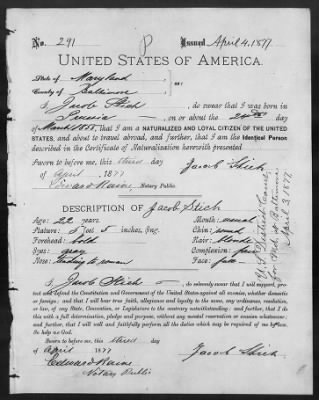 No. 291 Issued April 4, 1877
UNITED STATES OF AMERICA.
State of Maryland
County of Baltimore
I, Jacob Stich, do swear that I was born in
Prussia on or about the 24th day
of March 1855, that I am a NATURALIZED AND LOYAL CITIZEN OF THE UNITED
STATES, and about to travel abroad, and further, that I am the Identical Person
described in the Certificate of Naturalization herewith presented
Sworn to before me, this third day Jacob Stich
of April 1877
Edward Raine, Notary Public.
DESCRIPTION OF Jacob Stich
Age: 22 years. Mouth: usual
Stature: 5 feet 5 inches, Eng. Chin: round
Forehead: both Hair: blonde
Eyes: gray Complexion: fair
Nose: tending to roman Face:
U.S. District Court
for Md. at Baltimore
April 3, 1877
I, Jacob Stich, solemnly swear that I will support, protect
and defend the Constitution and Government of the United States against all enemies, whether domestic
or foreign; and that I will bear true faith, allegiance and loyalty to the same, any ordinance, resolution,
or law, of any State, Convention, or Legislature to the contrary notwithstanding; and further, that I do
this with a full determination, pledge and purpose, without any mental reservation or evasion whatsoever;
and further, that I will well and faithfully perform all the duties which may be required of me by law.
So help me God.
Sworn to before me, this third day
of April 1877 Jacob Stich
Edward Raine
Notary Public